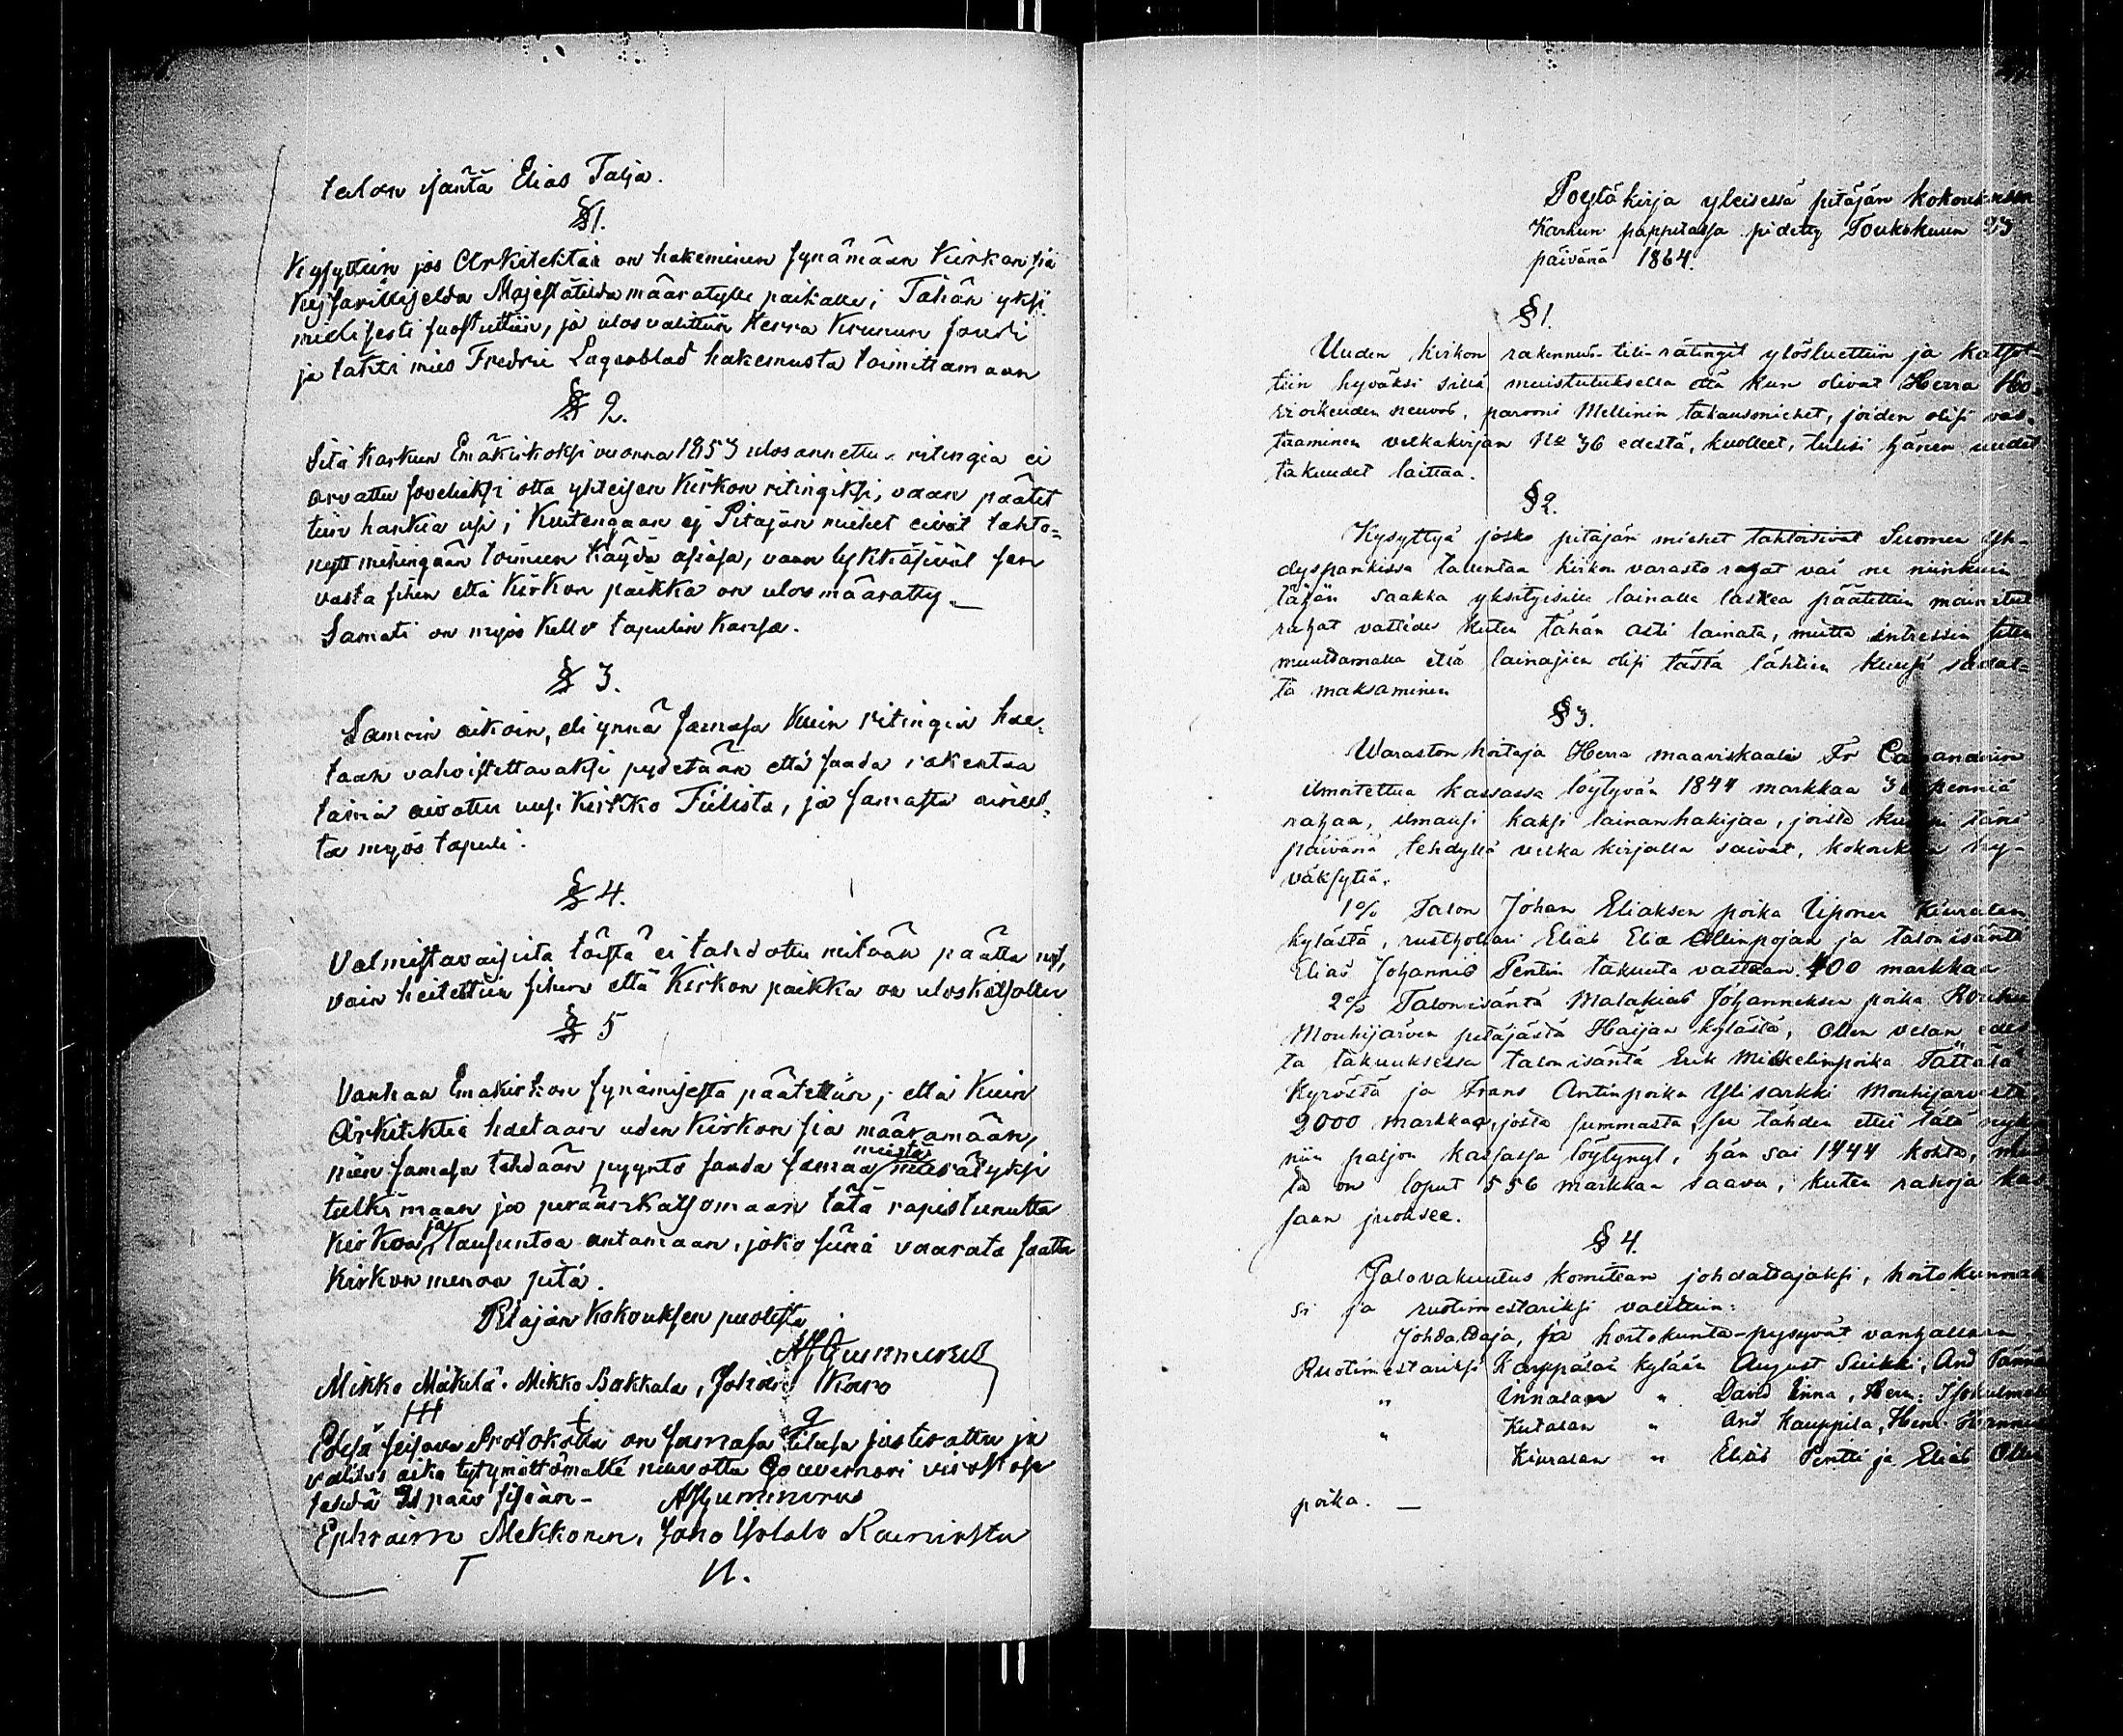 talon isäntä Elias Talja.
§ 1.
Kysyttiin jos Arkitektia on hakeminen synämään kirkon sia
Kejsarilliselda Majestätilda määrätylle paikalle; Tähän yksi
mielisesti suostuttiin, ja ulosvalittiin Herra Kruunun foudi
ja lahtimies Fredric Lagerblad hakemusta toimittamaan
§ 2.
Sitä Karkun Emäkirkoksi vuonna 1853 ulosannettua ritingiä ei
arvattu soveliaksi otta yhteisen Kirkon ritingiksi, vaan päätet
tiin hankia usi; Kuitengaan ej Pitäjän miehet eivät tahto=
neet mihingään toimeen käydä asiasa, vaan lykkäsivät sen
vasta sihen että Kirkon paikka on ulosmäärätty _
Samati on myös kello tapulin kansa.
§ 3.
Samoin aikoin, eli ynnä samasa kuin ritingiä hae=
taan vahvistettavaksi pydetään että saada rakentaa
tämä aivottu uusi Kirkko Tiilistä, ja samasta ainees=
ta myös tapuli.
§ 4.
Valmistavaisista töistä ei tahdottu mitään päättä nyt,
vain heitettiin sihen että Kirkon paikka on uloskatsottu
§ 5
Vanhan Emäkirkon synämisestä päätettiin, että kuin
Arkitektiä haetaan uden Kirkon sia määrämään,
niin samasa tehdään pyyntö saada samaa miestä
tutkimaan ja peräänkatsomaan tätä rapistunutta
Kirkoa ja lausuntoa antamaan, joko siinä vaarata saatta
Kirkon menoa pitä.
Pitäjän Kokouksen puolesta
AHGummerus
Mikko Mäkelä. Mikko Bakkala, Johan Karo
Edesä seisova Protokolla on samasa tilasa justerattu ja
valitus aika tytymättömälle neuvottu Gouvernöri virastosa
AHGummerus
Ephraim Mekkonen, Juho
Poeytäkirja yleisessä pitäjän kokouksessa
Karkun pappilassa pidetty Toukokuun 23
päivänä 1864.
§ 1.
Uuden kirkon rakennus-tili-rätingit ylösluettiin ja katsot-
tiin hyväksi sillä muistutuksella että kun olivat Herra Ho-
vioikeuden neuvos, parooni Mellinin takausmiehet, joiden olisi vas-
taaminen velkakirjan No 36 edestä, kuolleet, tulisi hänen uudet
takuudet laittaa.
§ 2.
Kysyttyä josko pitäjän miehet tahtoisivat Suomen yh-
dyspankissa talentaa kirkon varasto rahat vai ne niinkuin
tähän saakka yksityisille lainalle laskea päätettiin mainitut
rahat vastedes kuten tähän asti lainata, mutta intressin siten
muuttamalla että lainajien olisi tästä lähtien kuusi sadal-
ta maksaminen
§ 3.
Waraston hoitaja Herra maaviskaali Fr
ilmoitettua kassassa löytyvän 1844 markkaa 36 penniä
rahaa, ilmausi kaksi lainanhakijaa, joista kumpi tänä
päivänä tehdyllä velka kirjalla saivat, kokouksen hy-
väksyttä.
1o/o Talon Johan Eliaksen poika Uponen Kiuralan
kylästä, rusthollari Elias Elia Ollinpojan ja talonisäntä
Elias Johannis Pentin takuuta vastaan 400 markkaa
2o/o Talonisäntä Malakias Johanneksen poika Rouhu
Mouhijärven pitäjästä Haijan kylästä, Ollen velan edes-
tä takuuksessa talonisäntä Erik Mikkelinpoika Tättälä
Kyröstä ja Frans Antinpoika Ylisarkki Mouhijärveltä,
2000 markkaa, josta summasta, sen tähden ettei tätä nykyä
niin paljon kassassa löytynyt, hän sai 1444 kohta, mut
ta on loput 556 markkaa saava, kuten rahoja kas-
saan juoksee.
§ 4.
Palovakuutus komitean johdattajaksi, hoitokunnak
si ja ruotimestariksi valittiin:
Johdattaja, ja hoitokunta pysyvät vanhallaan
Ruotimestariksi Karppälän kylään August Suikki, And
" Innalan " David Inna, Herm.
" Kutalan " And Kauppila, Henr.
Kiuralan " Elias Pentti ja Elias Ollin
poika. —